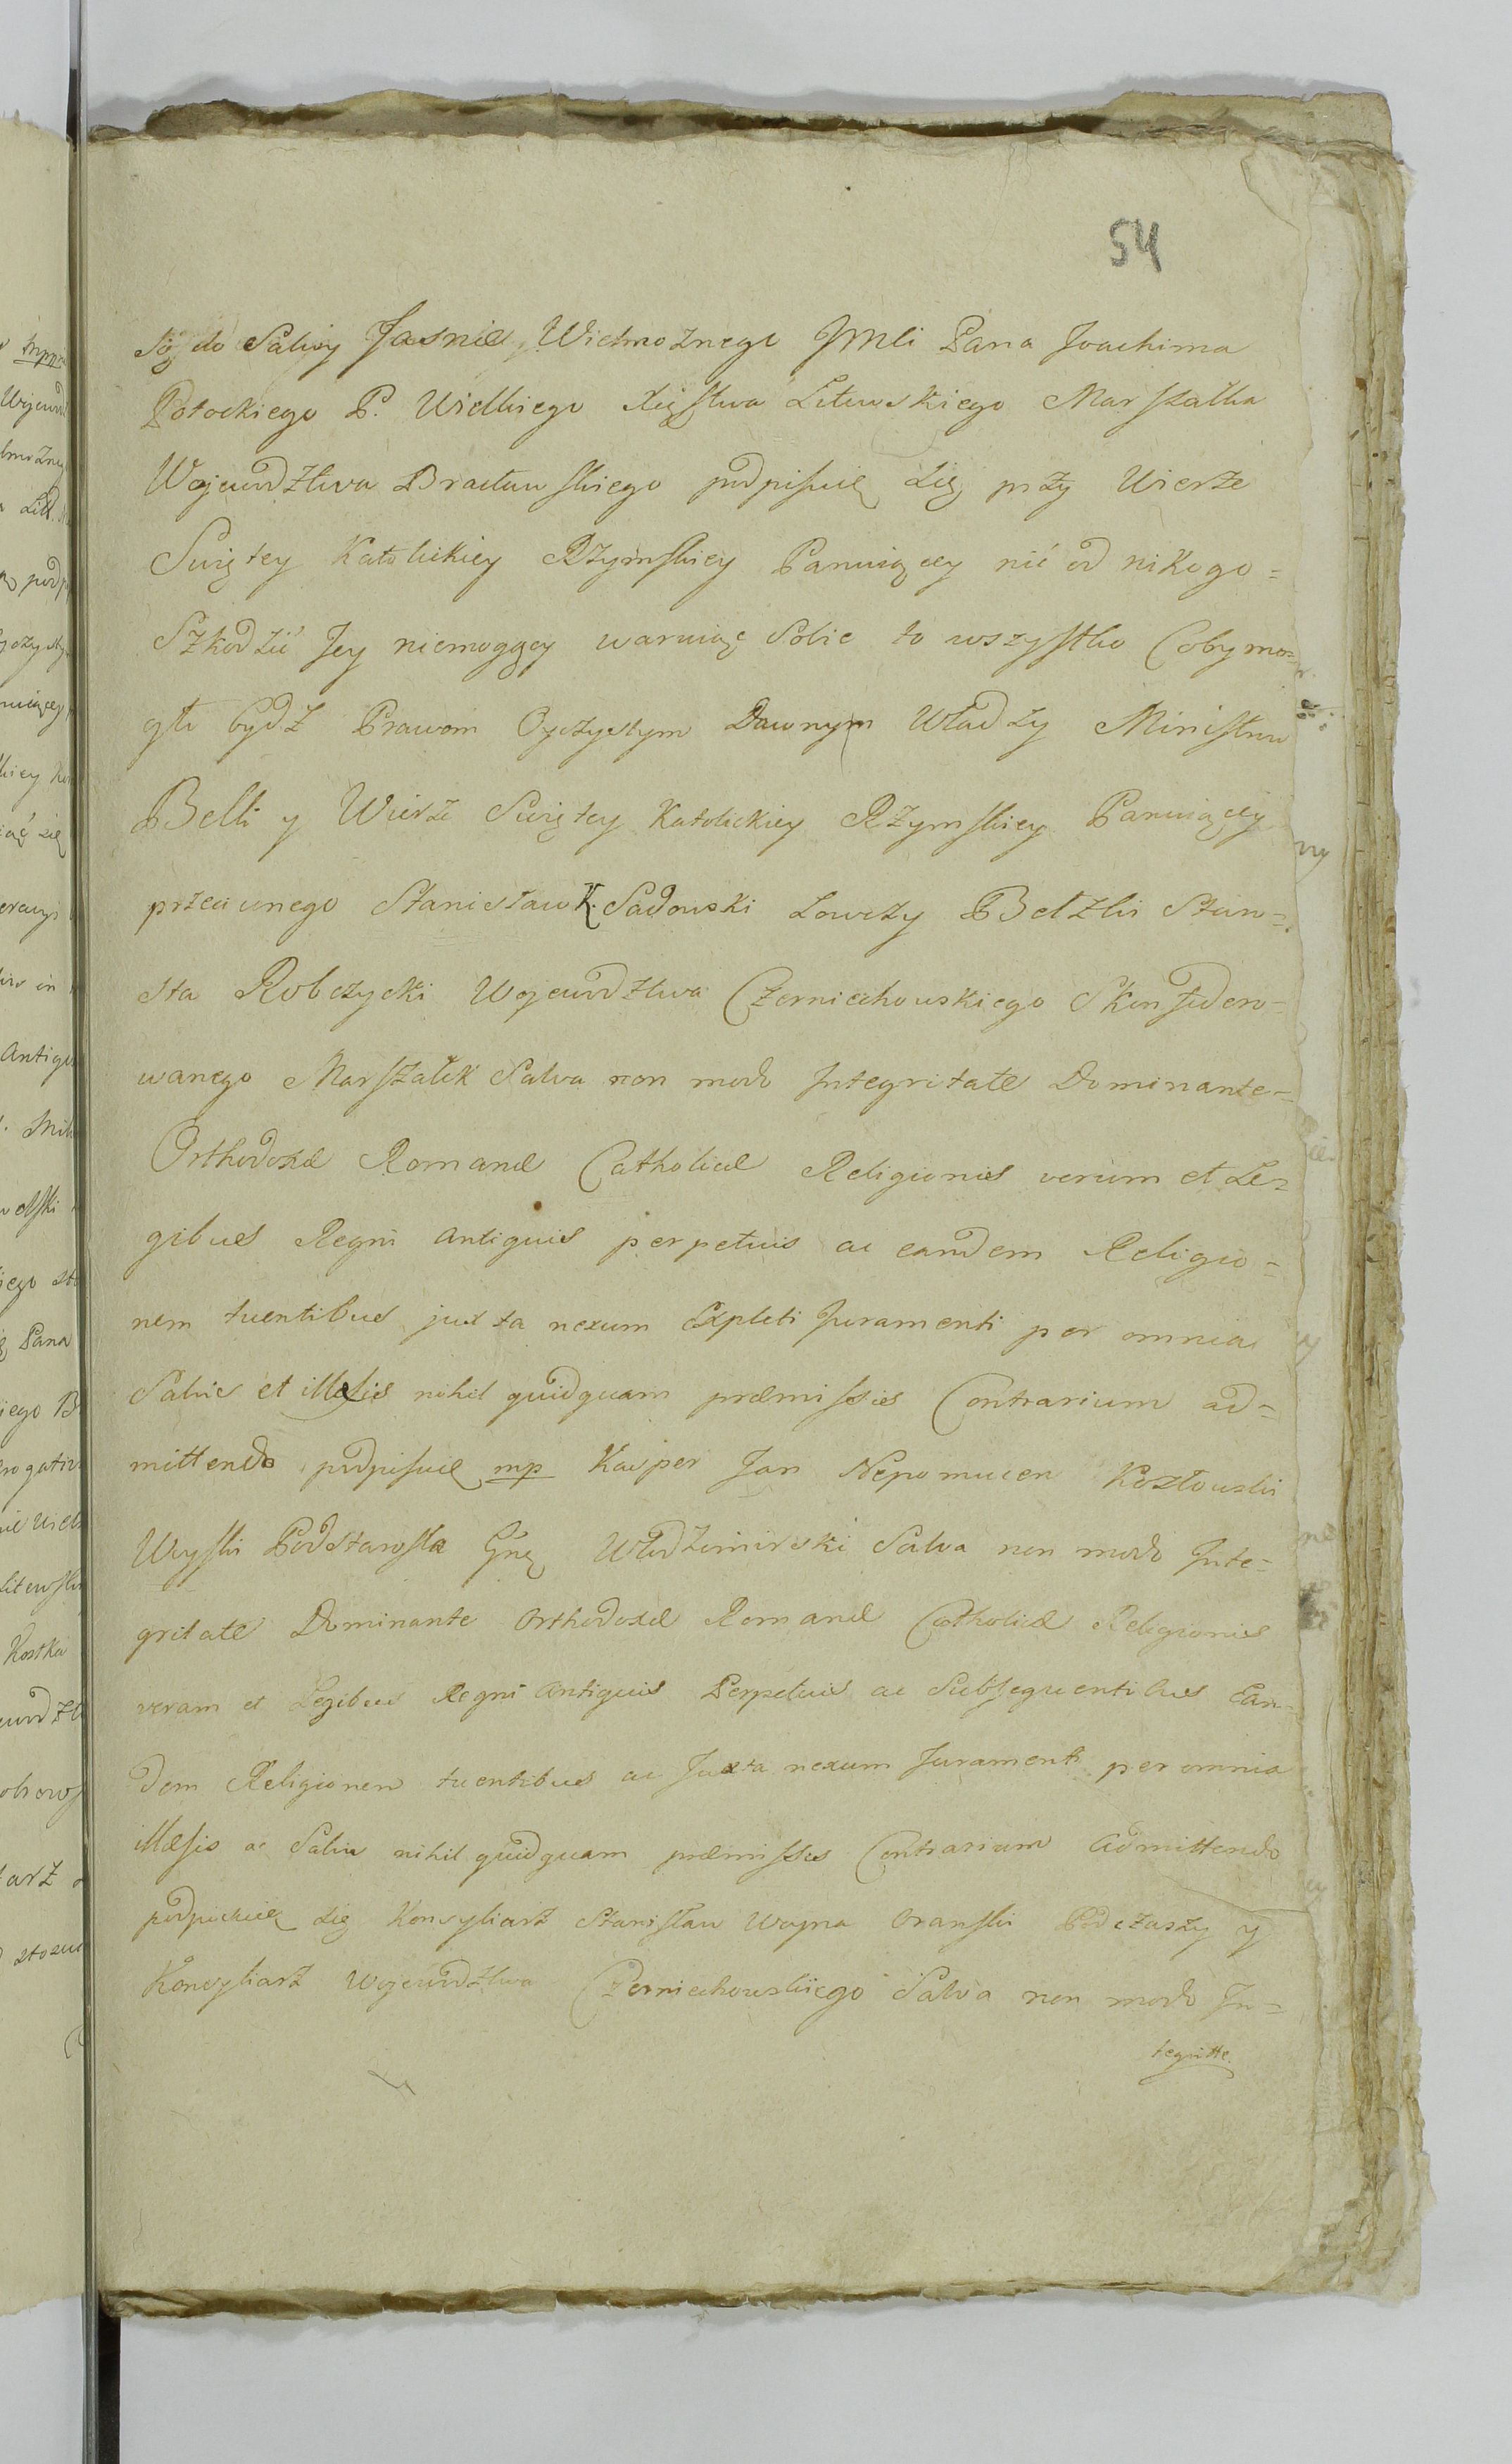 54
Się do Salwy Jasnie Wielmoznego JMCi Pana Joachima
Potockiego P. Wielkiego Xięstwa Litewskiego Marszałka
Wojewodztwa Bracławskiego podpisuię się przy Wierze
Swiętey Katolickiey Rzymskiey Panuiącey nic od nikogo=
Szkodzić Jey niemogącey waruiąc Sobie to wszystko Coby mo=
gło bydz Prawom Oyczystym Dawnym Władzy Ministrow
Belli y Wierze Swiętey Katolickiey Rzymskiey Panuiącey
przeciwnego Stanisław K. Sadowski Łowczy Bełzki Staro=
sta Robczycki Wojewodztwa Czerniechowskiego Skonfedero=
wanego Marszałek Salva non modo Integritate Dominante=
Orthodoxæ Romanæ Catholicæ Religionis verum et Le=
gibus Regni antiquis perpetuis ac eandem Religio=
nem tuentibus juxta nexum Expleti Juramenti per omnia
Salvis et illæsis nihil quidquam præmissis Contrarium ad=
mittendo podpisuię mp Kasper Jan Nepomucen Kozłowski
Woyski Podstarosta Gnę Włodzimirski Salva non modo Inte=
gritate Dominante Orthodoxæ Romanæ Catholicæ Religionis
veram et Legibus Regni Antiquis Perpetuis ac Subsequentibus Ean=
dem Religionem tuentibus ac Juxta nexum Juramenti per omnia
illæsis ac Salvis nihil quidquam præmissis Contrarium Admittendo
podpisuię się Konsyliarz Stanisław Woyna Oranski Podczaszy y
Konsyliarz Wojewodztwa Czerniechowskiego Salva non modo In=
tegritte.